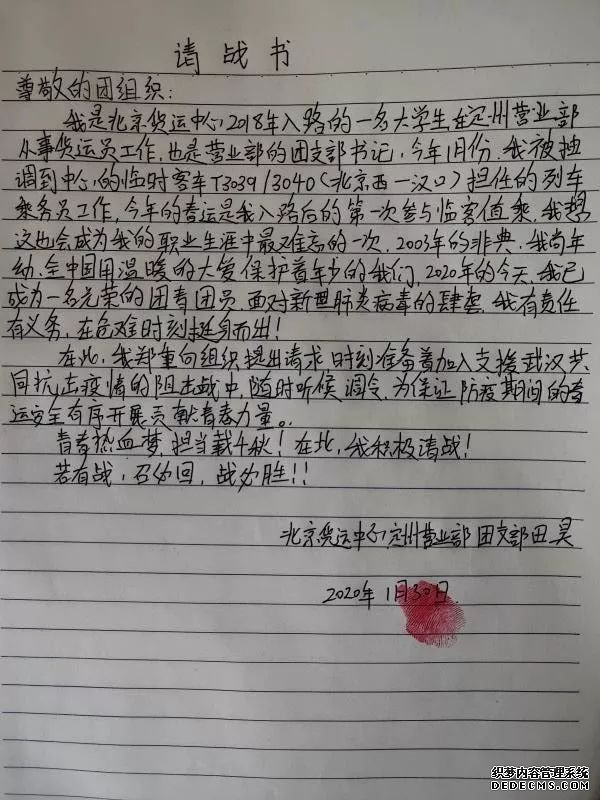 请战书
尊敬的团组织：
我是北京货运中心2018年入路的一名大学生在定州营业部
从事货运员工作，也是营业部的团支部书记，今年1月份，我被抽
调到中心的临时客车T3039/3040（北京西一汉口）担任的列车
乘务员工作，今年的春运是我入路后的第一次参与临客值乘，我想
这也会成为我的职业生涯中最难忘的一次，2003年的非典，我尚年
幼，全中国用温暖的大爱保护着年少的我们，2020年的今天，我已
成为一名光荣的团青团员，面对新型肺炎病毒的肆虐，我有责任
有义务，在危难时刻挺身而出！
在此，我郑重向组织提出请求时刻准备着加入支援武汉共
同抗击疫情的阻击战中，随时听候调令，为保证防疫期间的春
运安全有序开展贡献青春力量。
青春热血梦，担当载千秋！在此，我积极请战！
若有战，召必回，战必胜！！
北京货运中心定州营业部团支部田昊
2020年1月30日
织梦内容管理系统
DEDECMS.COM